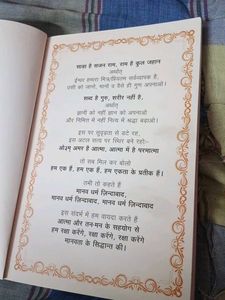 साजन है सजन राम, राम है कुल जहान
अर्थात्
ईश्वर हमारा मित्र/प्रियतम सर्वव्यापक है,
उसी को जानो, मानो व वैसे ही गुण अपनाओ।
शब्द है गुरु, शरीर नहीं है,
अर्थात्
ज्ञानी को नहीं ज्ञान को अपनाओ
और निमित्त में नहीं नित्य में श्रद्धा बढ़ाओ।
इस पर सुदृढ़ता से डटे रह,
इस अटल सत्य पर स्थिर बने रहो:-
ओ३म् अमर है आत्मा, आत्मा में है परमात्मा
तो सब मिल कर बोलो
हम एक हैं, हम एक हैं, हम एकता के प्रतीक हैं।
तभी तो कहते हैं
मानव धर्म ज़िन्दाबाद,
मानव धर्म ज़िन्दाबाद, मानव धर्म ज़िन्दाबाद
इस संदर्भ में हम वायदा करते हैं
आत्मा और तन-मन के सहयोग से
हम रक्षा करेंगे, रक्षा करेंगे, रक्षा करेंगे
मानवता के सिद्धान्त की।